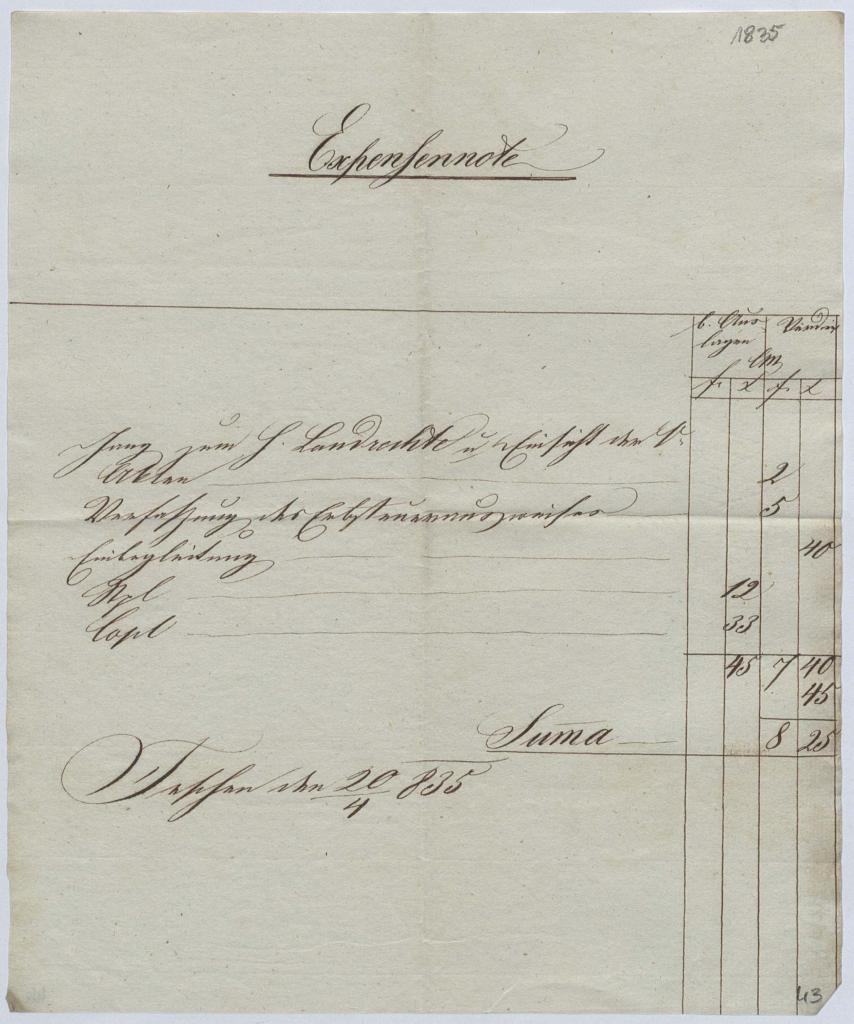 1835
Expensennote
b. Aus-
lagen
Verdin
CM
f. x f. x
Gang zum H. Landrechte u. Einsicht der V.
Akten 2
Verfassung des Erbsteuerausweises 5
Einbegleitung 40
Stpl 12
Copl 33
45 7 40
45
Suma 8 25
Teschen den 20/4 835
43